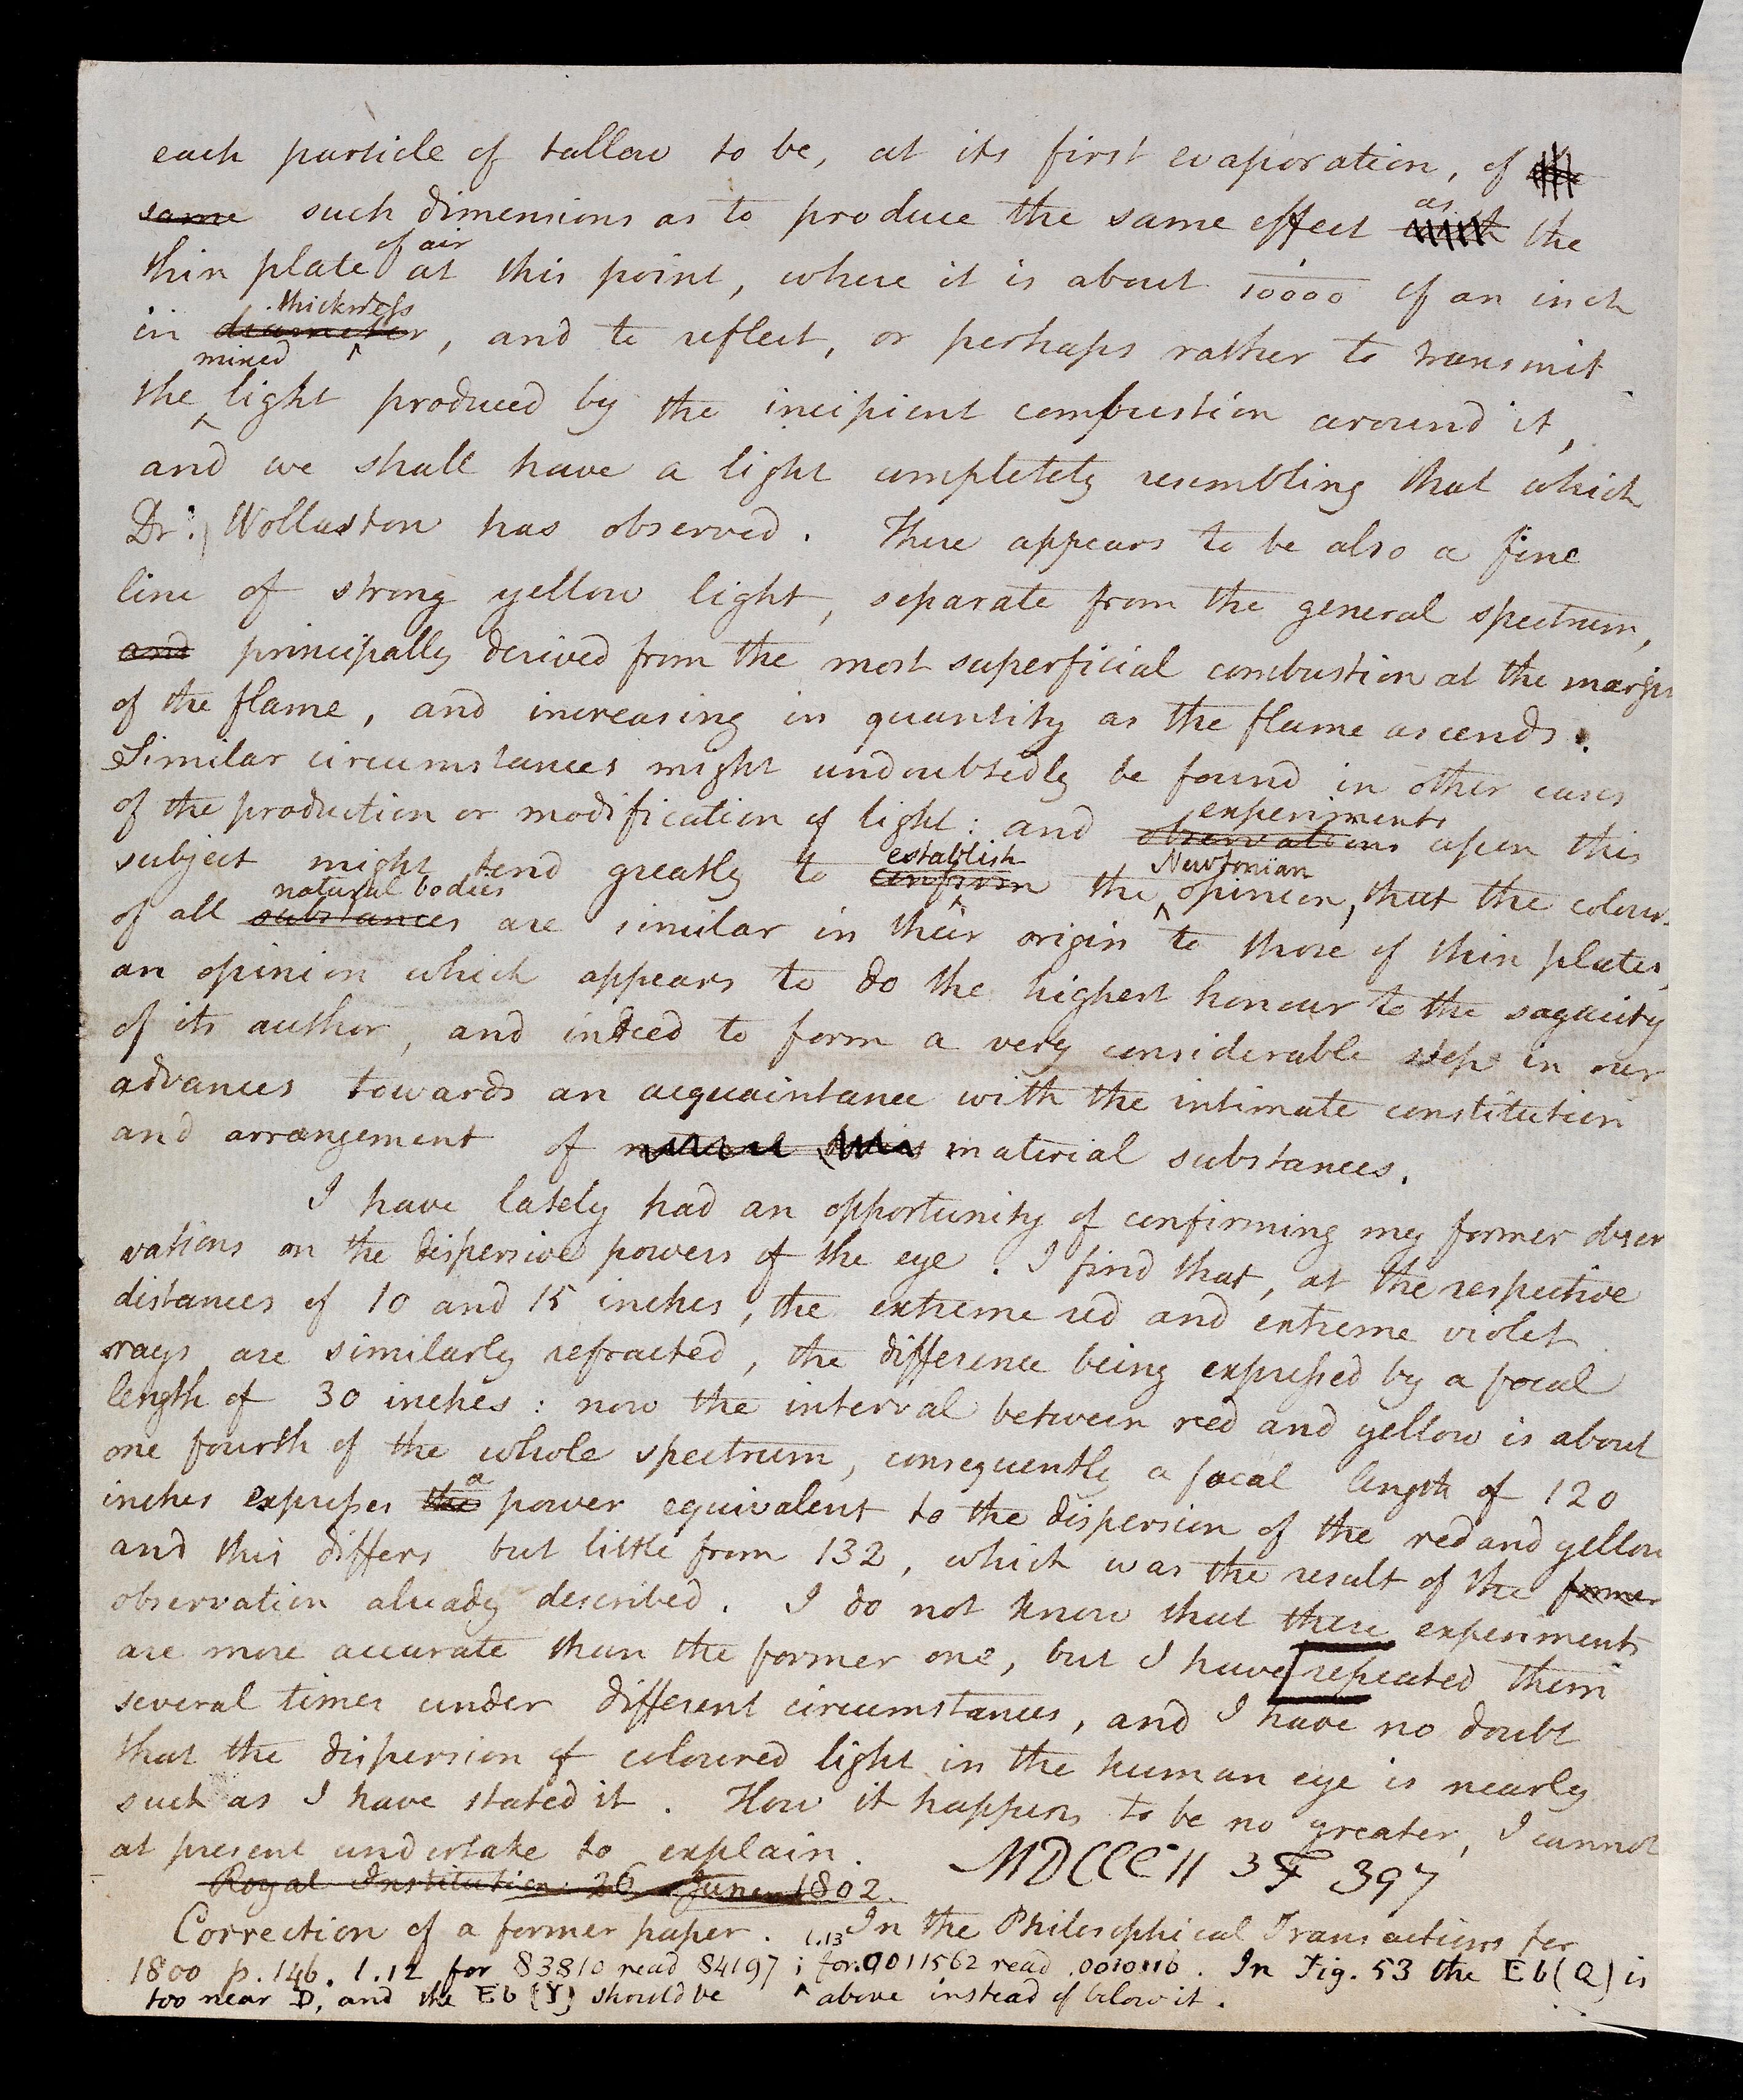 each particle of tallow to be, at its first evaporation, of
same such dimensions as to produce the same effect as the
thin plate of air at this point, where it is about 1/10000 of an inch
in diameter thickness, and to reflect, or perhaps rather to transmit
the mixed light produced by the incipient combustion around it,
and we shall have a light completely resembling that which
Dr. Wollaston has observed. There appears to be also a fine
line of strong yellow light, separate from the general spectrum,
and principally derived from the most superficial combustion at the margin
of the flame, and increasing in quantity as the flame ascends.
Similar circumstances might undoubtedly be found in other cases
of the production or modification of light: and observations experiments upon this
subject might tend greatly to confirm establish the Newtonian opinion, that the colours
of all substances natural bodies are similar in their origin to those of thin plates,
an opinion which appears to do the highest honour to the sagacity
of its author, and indeed to form a very considerable step in our
advances towards an acquaintance with the intimate constitution
and arrangement of material substances.
I have lately had an opportunity of confirming my former obser
vations on the dispersive powers of the eye. I find that, at the respective
distances of 10 and 15 inches, the extreme red and extreme violet
rays are similarly refracted, the difference being expressed by a focal
length of 30 inches: now the interval between red and yellow is about
one fourth of the whole spectrum, consequently a focal length of 120
inches expresses the a power equivalent to the dispersion of the red and yellow
and this differs but little from 132, which was the result of the former
observation already described. I do not know that these experiments
are more accurate than the former one, but I have repeated them
several times under different circumstances, and I have no doubt
that the dispersion of coloured light in the human eye is nearly
such as I have stated it. How it happens to be no greater, I cannot
at present undertake to explain.
MDCCCII 3 397
Royal Institution 26 June 1802.
Correction of a former paper. In the Philosophical Transactions for
1800 p. 146. l. 12 for 83810 read 84197; l.13 for .0011562 read .0010116. In Fig. 53 the Eb(Q) is
too near D, and the Eb (Y) should be above instead of below it.